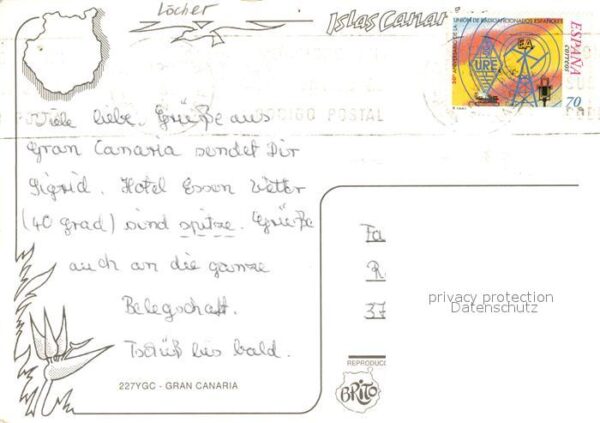 Löcher
Islas Canari
50º ANIVERSARIO DE LA UNION DE RADIOAFICIONADOS ESPAÑOLES
ESPAÑA
correos
EA
URE
70
CODIGO POSTAL
Viele liebe Grüße aus
Gran Canaria sendet Dir
Sigrid. Hotel Essen Wetter
(40 grad) sind spitze. Grüße
auch an die ganze
Belegschaft.
Tschüß bis bald.
Fa
R
37
privacy protection
Datenschutz
REPRODUC
BRITO
227YGC - GRAN CANARIA